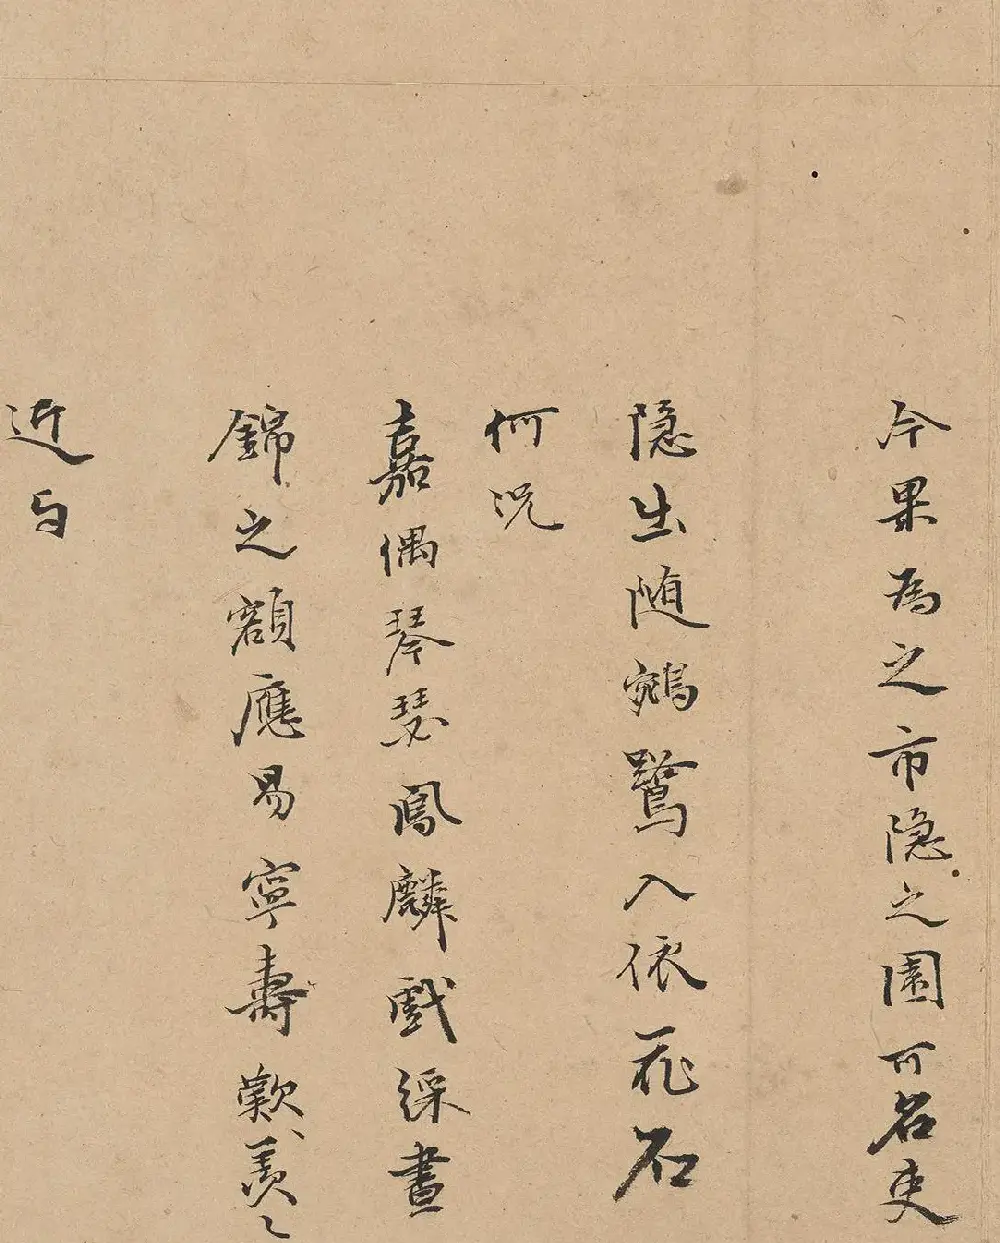 今果為之市隱之園可名吏
隱出随鵷鷺入依花石
何況
嘉偶琴瑟鳳麟戲綵晝
錦之額應易寧壽歎羨々
近與